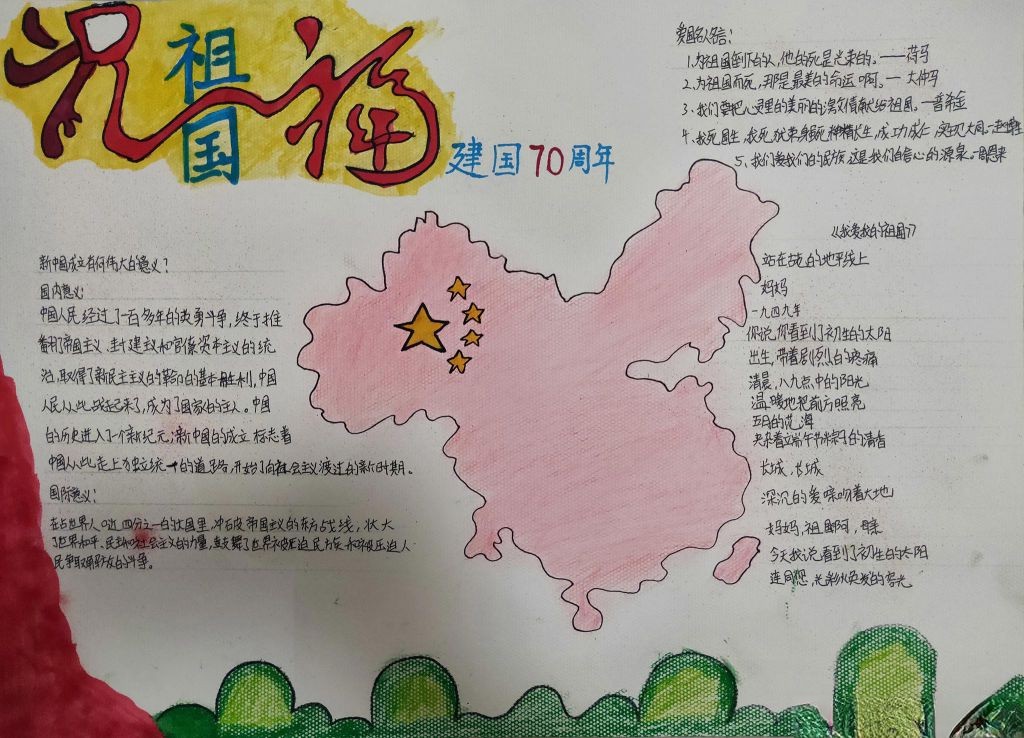 祝福
祖国
建国70周年
爱国名人名言:
1.为祖国倒下的人,他的死是光荣的。——荷马
2.为祖国而死,那是最美的命运啊。—大仲马
3.我们要把心灵里的美丽的激情献给祖国。—普希金
4.我死国生,我死犹荣,身死精神生,成功成仁,实现大同。—赵博生
5.我们爱我们的民族,这是我们自信心的源泉。—周恩来
新中国成立有何伟大的意义?
国内意义:
中国人民经过了一百多年的英勇斗争,终于推
翻了帝国主义、封建主义和官僚资本主义的统
治,取得了新民主主义的革命的基本胜利,中国
人民从此站起来了,成为了国家的主人。中国
的历史进入了一个新纪元;新中国的成立标志着
中国从此走上独立统一的道路,开始了向社会主义渡过的新时期。
国际意义:
在占世界人口近四分之一的大国里,冲破帝国主义的东方战线,壮大
了世界和平、民主和社会主义的力量,鼓舞了世界被压迫民族和被压迫人
民争取解放的斗争。
《我爱我的祖国》
站在古老的地平线上
妈妈
一九四九年
你说,你看到了初生的太阳
出生,带着剧烈的疼痛
清晨,八九点中的阳光
温暖地把前方照亮
五月的花海
夹杂着端午节粽子的清香
长城,长城
深沉的爱
着大地
妈妈,祖国啊,母亲
今天我说看到了初生的太阳
连同您,光彩
发的容光